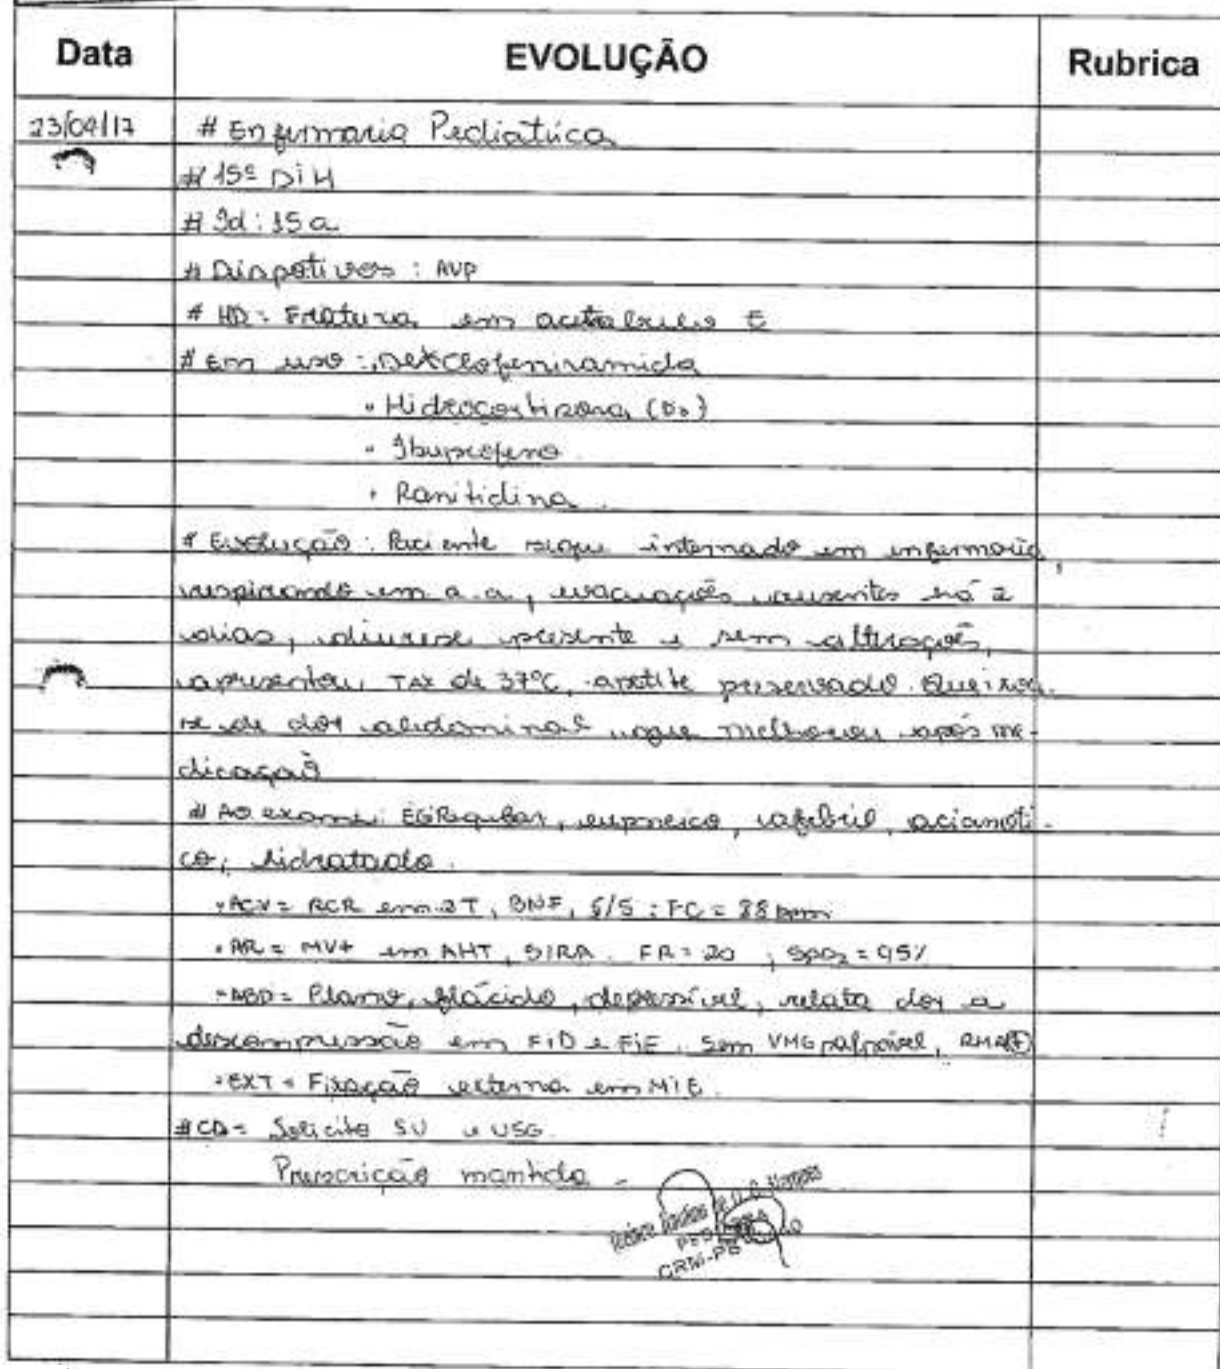 Data EVOLUÇÃO Rubrica
23/09/17 # Enfermaria Pediátrica
# 15º DIH
# Id: 15 a
# Dispotivos: AVP
# HD: Fratura em acetabulo E
# Em uso: Dexclofeniramida
• Hidrocortisona (D0)
• Ibuprofeno
• Ranitidina.
# Evolução: Paciente segue internado em enfermaria,
respirando em a.a, evacuações ausentes há 2
dias, diurese presente e sem alterações,
apresentou TAX de 37ºC, apetite preservado. Queixou
se de dor abdominal que melhorou após me-
dicação
# Ao exame: EGRegular, eupneico, afebril, acianoti-
co, hidratado.
• ACV = RCR em 2T, BNF, S/S; FC = 88 bpm
• AR = MV+ em AHT, S/RA. FR = 20, SpO2 = 95%
- ABD = Plano, flácido, depressível, relata dor a
descompressão em FID e FIE. Sem VMG palpável, RHA(+)
• EXT = Fixação externa em MIE.
# CD = Solicito SU e USG.
Prescrição mantida -
CRM-PB